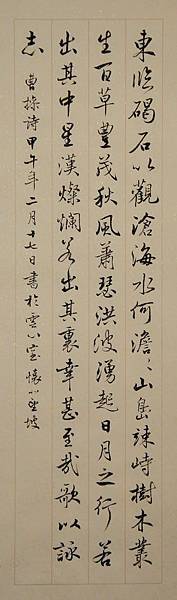 東臨碣石以觀滄海水何澹〻山島竦峙樹木叢
生百草豐茂秋風蕭瑟洪波湧起日月之行若
出其中星漢燦爛若出其裏幸甚至哉歌以詠
志 曹操詩甲午年二月十七日書於雲心室 懷